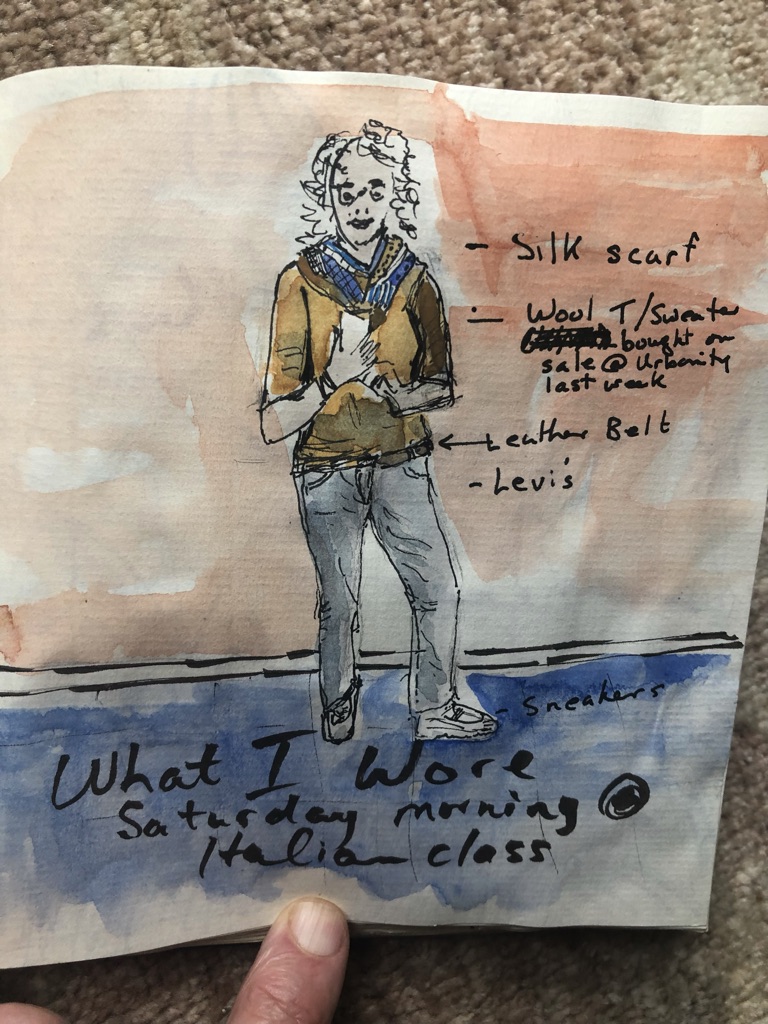 - Silk scarf
- Wool T/Sweater
bought on
sale @ Urbanity
last week
Leather Belt
- Levi's
- Sneakers
What I Wore
Saturday morning @
Italian class